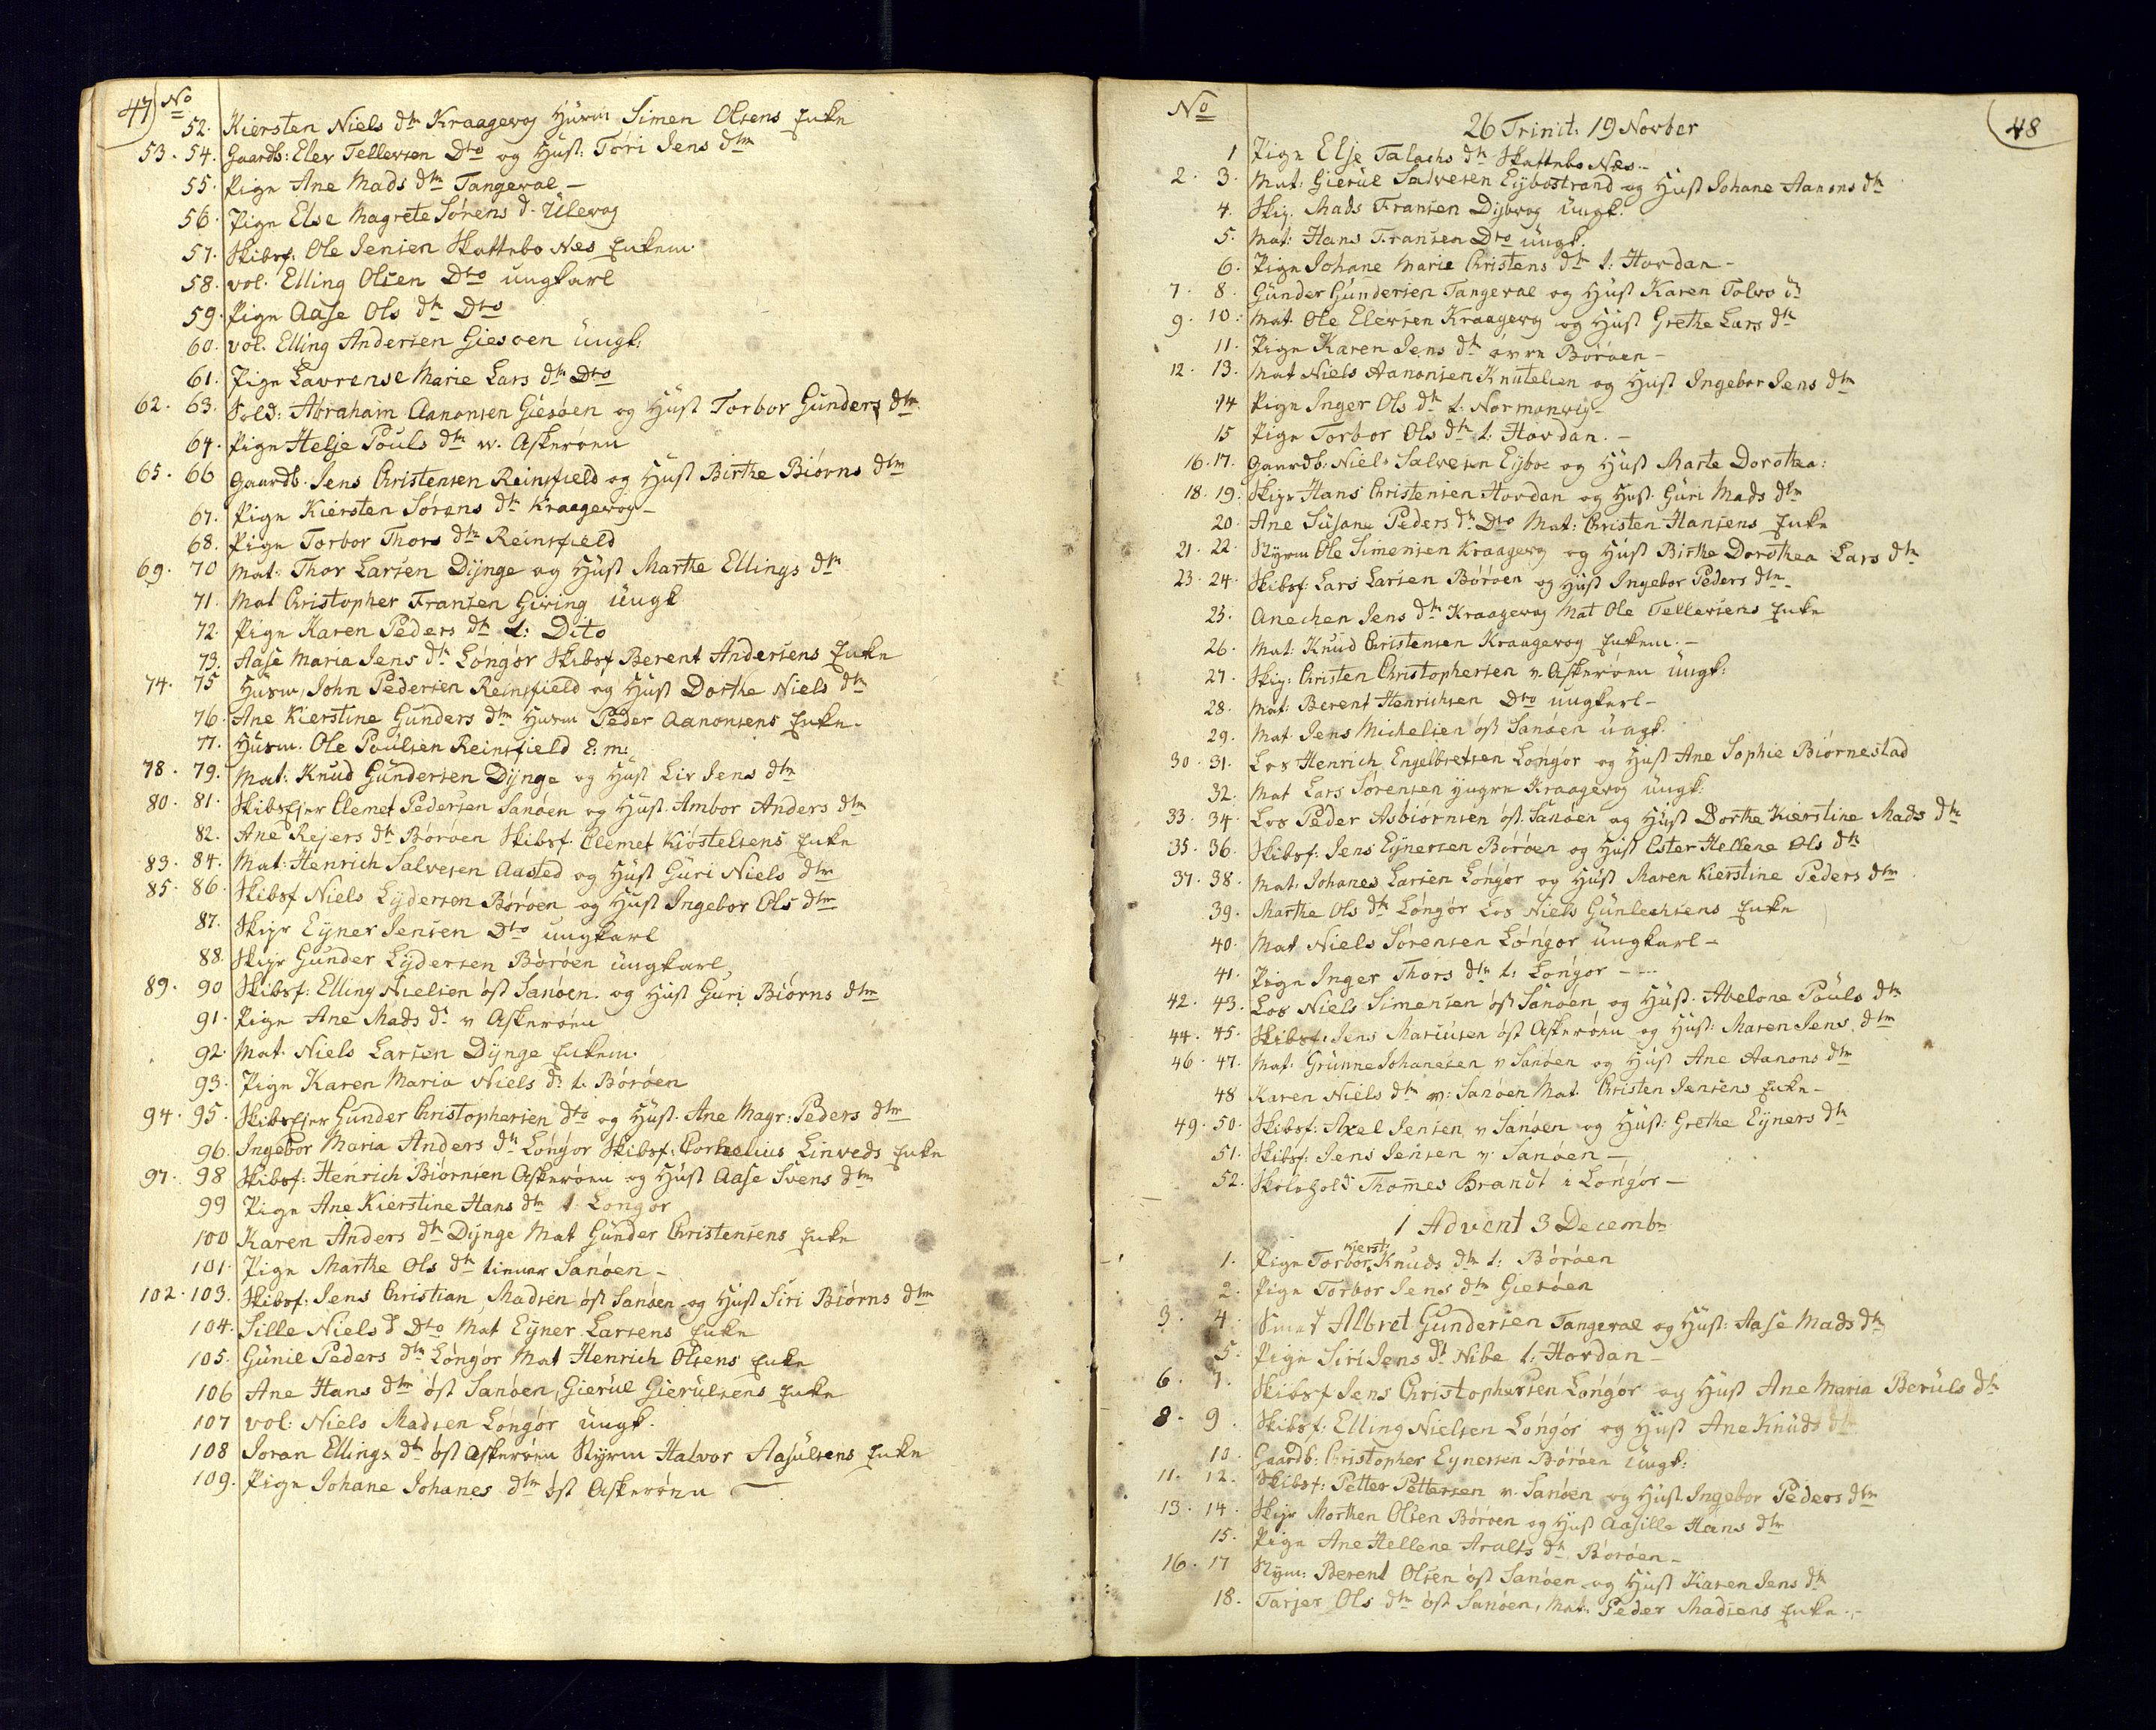 47) No
52. Kiersten Niels dtr Kraagevog Husm Simen Olsens Enke
53. 54. Gaardb: Elev Tellevsen Dto og Hust: Tóri Jens dtr
55. Pige Ane Mads dtr Tangevae –
56. Pige Else Magrete Sórens d. Ulevog
57. Skibsf: Ole Jensen Skattebo Nes Enkem.
58. vol. Elling Olsen Dto ungkarl
59. Pige Aase Ols dtr Dto
60. vol. Elling Andersen Giesøen ungk:
61. Pige Lavrense Marie Lars dtr Dto
62. 63. Sold: Abraham Aanonsen Giesøen og Hust Torbor Gunders dtr
64. Pige Helje Pouls dtr v. Askerøen
65. 66 Gaardb. Jens Christensen Reinsfield og Hust Birthe Biørns dtr
67. Pige Kiersten Sórens dtr Kraagevog –
68. Pige Torbor Thors dtr Reinsfield
69. 70 Mat: Thor Larsen Dijnge og Hust Marthe Ellings dtr
71. Mat Christopher Fransen Giving ungk
72. Pige Karen Peders dtr t: Dito
73. Aase Maria Jens dtr Lóngór Skibsf Berent Andersens Enke
74. 75 Husm John Pedersen Reinsfield og Hust Dorthe Niels dtr
76. Ane Kierstine Gunders dtr Husm Peder Aanonsens Enke.
77. Husm. Ole Poulsen Reinsfield E: m:
78. 79. Mat: Knud Gundersen Dijnge og Hust Liv Jens dtr
80. 81. Skibsejer Clemet Pedersen Sanøen og Hust. Ambor Anders dtr
82. Ane Rejers dtr Bórøen Skibsf. Clemet Kióstelsens Enke
83. 84. Mat: Henrich Salvesen Aasted og Hust Guri Niels dtr
85. 86. Skibsf Niels Lydersen Bórøen og Hust Ingebor Ols dtr
87. Skipr Eyner Jensen Dto ungkarl
88. Skipr Gunder Lydersen Bórøen ungkarl
89. 90 Skibsf: Elling Nielsen óst Sanøen. og Hust Guri Biórns dtr
91. Pige Ane Mads dr v Askerøen
92. Mat. Niels Larsen Dijnge Enkem.
93. Pige Karen Maria Niels dr t. Bórøen
94. 95. Skibsejer Gunder Christophersen dto og Hust. Ane Magr: Peders dtr
96. Ingebor Maria Anders dtr Lóngór Skibsf: Cornelius Linveds Enke
97. 98 Skibsf: Henrich Biórnsen Askerøen og Hust Aase Svens dtr
99 Pige Ane Kierstine Hans dtr t. Longór
100 Karen Anders dtr Dijnge Mat Gunder Christensens Enke
101. Pige Marthe Ols dtr tiener Sanøen –
102. 103. Skibsf: Jens Christian Madsen óst Sanøen og Hust Siri Biórns dtr
104. Sille Niels d Dto Mat Eyner Larsens Enke
105. Gunil Peders dtr Lóngór Mat Henrich Olsens Enke
106 Ane Hans dtr óst Sanøen, Gierul Gierulsens Enke
107 vol: Niels Madsen Lóngór ungk.
108 Joran Ellings dtr óst Askerøen Styrm Halvor Aasulsens Enke
109. Pige Johane Johanes dtr óst Askerøen —
No
48
26 Trinit: 19 Novber
1 Pige Elje Talachs dtr Skattebo Nes –
2. 3. Mat: Gierul Salvesen Eijbostrand og Hust Johane Aanons dtr
4. Skip. Mads Fransen Dijbvog ungk:
5. Mat: Hans Fransen Dto ungk.
6. Pige Johane Marie Christens dtr t: Hovdan –
7. 8. Gunder Gundersen Tangevae og Hust Karen Tolvs dr
9. 10. Mat. Ole Elevsen Kraagevog og Hust Grethe Lars dtr
11. Pige Karen Jens dtr óvre Bórøen –
12. 13. Mat Niels Aanonsen Knutelien og Hust Ingebor Jens dtr
14 Pige Inger Ols dtr t: Normanvig –
15 Pige Torbor Ols dtr t: Hovdan. –
16. 17. Gaardb: Niels Salvesen Eijboe og Hust Marte Dorothea:
18. 19. Skipr Hans Christensen Hovdan og Hust. Guri Mads dtr
20. Ane Susane Peders dtr Dto Mat: Christen Hansens Enke
21. 22. Styrm Ole Simensen Kraagevog og Hust Birthe Dorothea Lars dtr
23. 24. Skibsf. Lars Larsen Bórøen og Hust Ingebor Peders dtr
25. Anechen Jens dtr Kraagevog Mat Ole Tellevsens Enke
26. Mat: Knud Christensen Kraagevog Enkem. –
27. Skip: Christen Christophersen v. Askerøen ungk:
28. Mat: Berent Henrichsen Dto ungkarl –
29. Mat. Jens Michelsen óst Sanøen ungk.
30. 31. Los Henrich Engelbretsen Lóngór og Hust Ane Sophie Biørnestad
32. Mat Lars Sórensen yngre Kraagevog ungk:
33. 34. Los Peder Asbiórnsen óst. Sanøen og Hust Dorthe Kierstine Mads dtr
35. 36. Skibsf: Jens Eynersen Bórøen og Hust Ester Hellene Ols dtr
37. 38. Mat: Johanes Larsen Lóngór og Hust Maren Kierstine Peders dtr
39. Marthe Ols dtr Lóngór Los Niels Gunlechsens Enke
40. Mat Niels Sórensen Lóngór ungkarl –
41. Pige Inger Thors dtr t: Lóngór – –
42. 43. Los Niels Simensen óst Sanøen og Hust. Abelone Pouls dtr
44. 45. Skibsf: Jens Mariusen óst Askerøen og Hust: Maren Jens dtr
46. 47. Mat: Grunne Johanesen v Sanøen og Hust Ane Aanons dtr
48 Karen Niels dtr v: Sanøen Mat. Christen Jensens Enke –
49. 50. Skibsf: Axel Jensen v Sanøen og Hust: Grethe Eyners dtr
51. Skibsf: Jens Jensen v. Sanøen –
52. Skolehold. Thomes Brandt i Lóngór –
1 Advent 3 Decembr
1. Pige Torbor Kierst: Knuds dtr t: Bórøen
2. Pige Torbor Jens dtr Giesøen
3. 4. Smed Albret Gundersen Tangevae og Hust: Aase Mads dtr
5. Pige Siri Jens dr Nibe t: Hovdan –
6. 7. Skibsf Jens Christophersen Lóngór og Hust Ane Maria Beruls dtr
8. 9. Skibsf: Elling Nielsen Lóngór og Hust Ane Knuds dtr
10. Gaardb: Christopher Eynersen Bórøen ungk:
11. 12. Skibsf: Petter Pettersen v. Sanøen og Hust Ingebor Peders dtr
13. 14. Skipr Morthen Olsen Bórøen og Hust Aasille Hans dtr
15. Pige Ane Hellene Aralts dtr Bórøen –
16. 17 Styrm: Berent Olsen óst Sanøen og Hust Karen Jens dtr
18. Tarjer Ols dtr óst Sanøen, Mat: Peder Madsens Enke. –